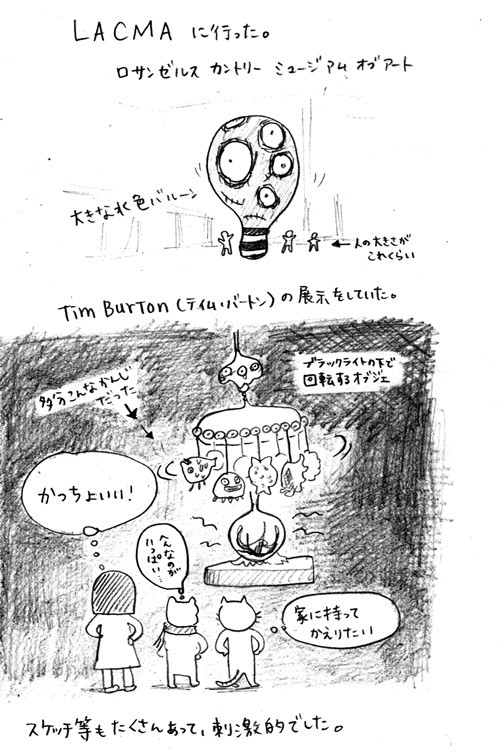 LACMA に行った。
ロサンゼルス カントリー ミュージアム オブ アート
大きな水色バルーン
← 人の大きさが
これくらい
Tim Burton (ティム・バートン) の展示をしていた。
ブラックライトの下で
回転するオブジェ
多分こんなかんじ
だった
かっちょいい!
へんなのが
いっぱい…
家に持って
かえりたい
スケッチ等もたくさんあって、刺激的でした。